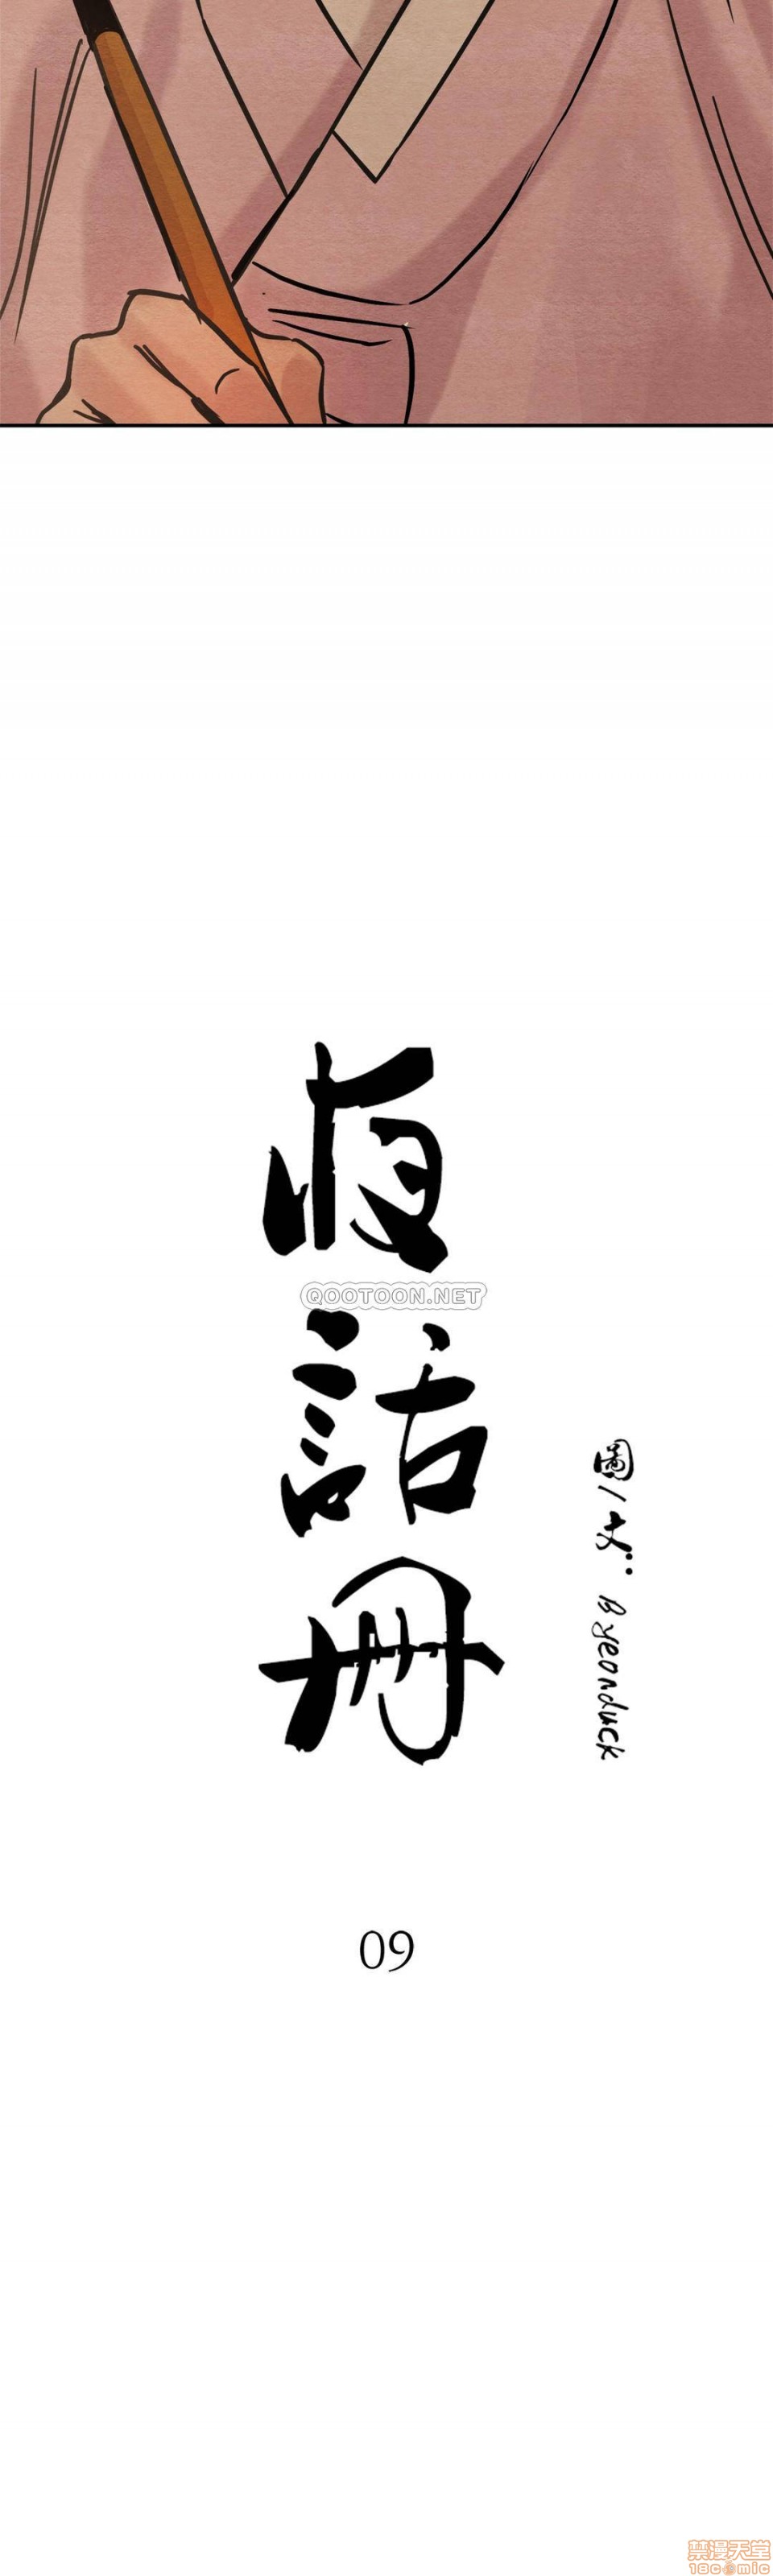 夜
QOOTOON.NET
話
冊
圖/文:Byeonduck
09
禁漫天堂
18comic